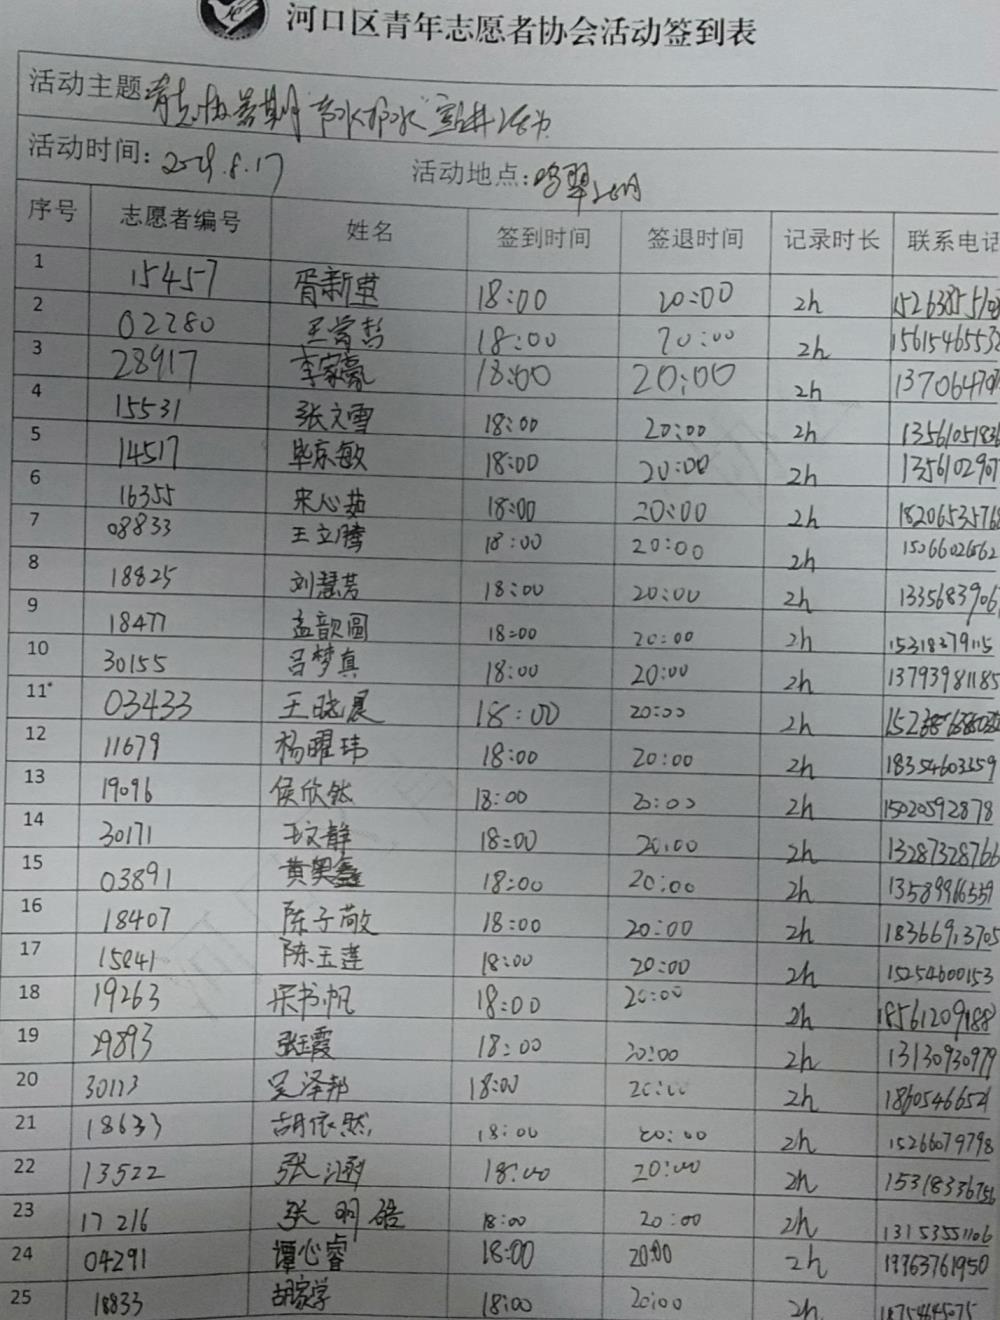 河口区青年志愿者协会活动签到表
活动主题 青志协暑期"节水护水"宣讲活动
活动时间: 2019.8.17 活动地点: 鸣翠湖
序号 志愿者编号 姓名 签到时间 签退时间 记录时长 联系电话
1 15457 胥新 18:00 20:00 2h
2 02280 王常哲 18:00 20:00 2h 1561546553
3 28917 李家豪 18:00 20:00 2h 13706470
4 15531 张文雪 18:00 20:00 2h 1356105183
5 14517 毕京敏 18:00 20:00 2h 1356102907
6 16355 宋心茹 18:00 20:00 2h 1820653576
7 08833 王立腾 18:00 20:00 2h 15066026562
8 18825 刘慧芳 18:00 20:00 2h 1335683906
9 18477 孟歆圆 18:00 20:00 2h 15318379115
10 30155 吕梦真 18:00 20:00 2h 13793981185
11 03433 王晓晨 18:00 20:00 2h
12 11679 杨曜玮 18:00 20:00 2h 18354603359
13 19096 侯欣然 18:00 20:00 2h 15020592878
14 30171 王文静 18:00 20:00 2h 13287328766
15 03891 黄奥鑫 18:00 20:00 2h 13589966559
16 18407 陈子敬 18:00 20:00 2h 18366913705
17 15841 陈玉莲 18:00 20:00 2h 15254600153
18 19263 宋书帆 18:00 20:00 2h 18561209188
19 29893 张玉霞 18:00 20:00 2h 13130930979
20 30113 吴泽邦 18:00 20:00 2h 18605466521
21 18633 胡依然 18:00 20:00 2h 15266079798
22 13522 张涵 18:00 20:00 2h 15318336756
23 17216 张明皓 18:00 20:00 2h 13153551106
24 04291 谭心睿 18:00 20:00 2h 19963761950
25 18833 胡家学 18:00 20:00 2h 18754645075